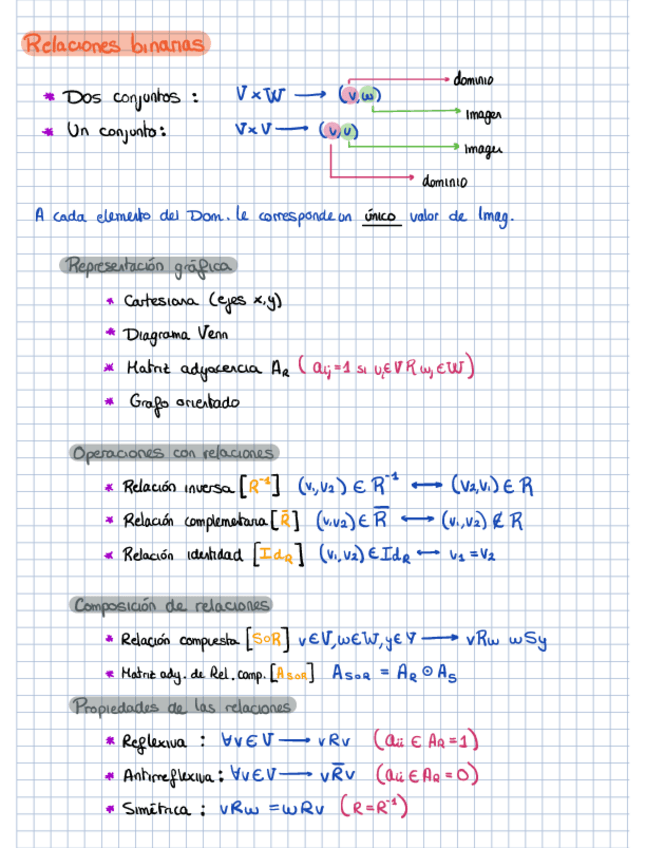 Relaciones binarias
* Dos conjuntos : V×W ⟶ (v,w) dominio
Imagen
* Un conjunto: V×V ⟶ (v,v) Imagen
dominio
A cada elemento del Dom. le corresponde un único valor de Imag.
Representación gráfica
* Cartesiana (ejes x,y)
* Diagrama Venn
* Matriz adyacencia A_R ( aij=1 si vi∈V R wj∈W )
* Grafo orientado
Operaciones con relaciones
* Relación inversa [R⁻¹] (v₁,v₂) ∈ R⁻¹ ⟷ (v₂,v₁) ∈ R
* Relación complementaria [R̄] (v₁,v₂) ∈ R̄ ⟷ (v₁,v₂) ∉ R
* Relación identidad [Id_R] (v₁,v₂) ∈ Id_R ⟷ v₁ = v₂
Composición de relaciones
* Relación compuesta [S∘R] v∈V, w∈W, y∈Y ⟶ vRw wSy
* Matriz ady. de Rel. comp. [A_S∘R] A_S∘R = A_R ⊙ A_S
Propiedades de las relaciones
* Reflexiva : ∀v∈V ⟶ vRv (aii ∈ A_R = 1)
* Antirreflexiva : ∀v∈V ⟶ vR̄v (aii ∈ A_R = 0)
* Simétrica : vRw = wRv (R = R⁻¹)